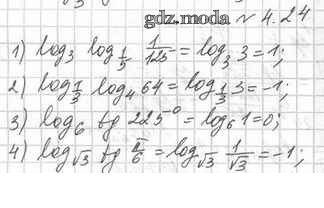 gdz.moda
№ 4.24
1) log₃ log_{1/5} 1/125 = log₃ 3 = 1;
2) log_{1/3} log₄ 64 = log_{1/3} 3 = -1;
3) log₆ tg 225° = log₆ 1 = 0;
4) log_{√3} tg π/6 = log_{√3} 1/√3 = -1;